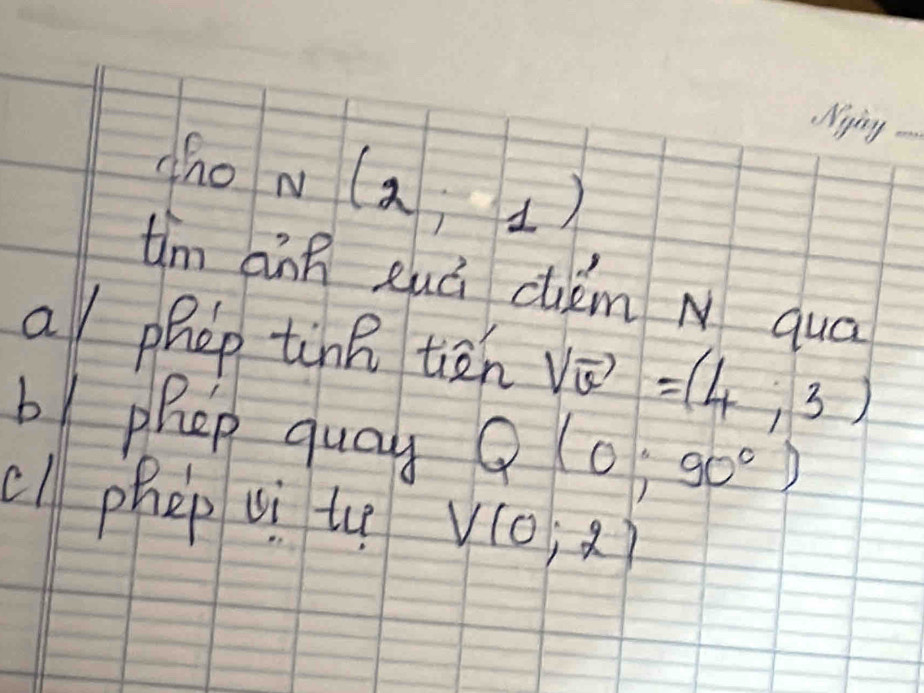 Ngày
cho N (2 ; 1)
tìm ảnh củả điểm N qua
a/ phép tịnh tiến Vv⃗ = (4 ; 3)
b/ phép quay Q (0 ; 90°)
c/ phép vị tự V(0 ; 2)